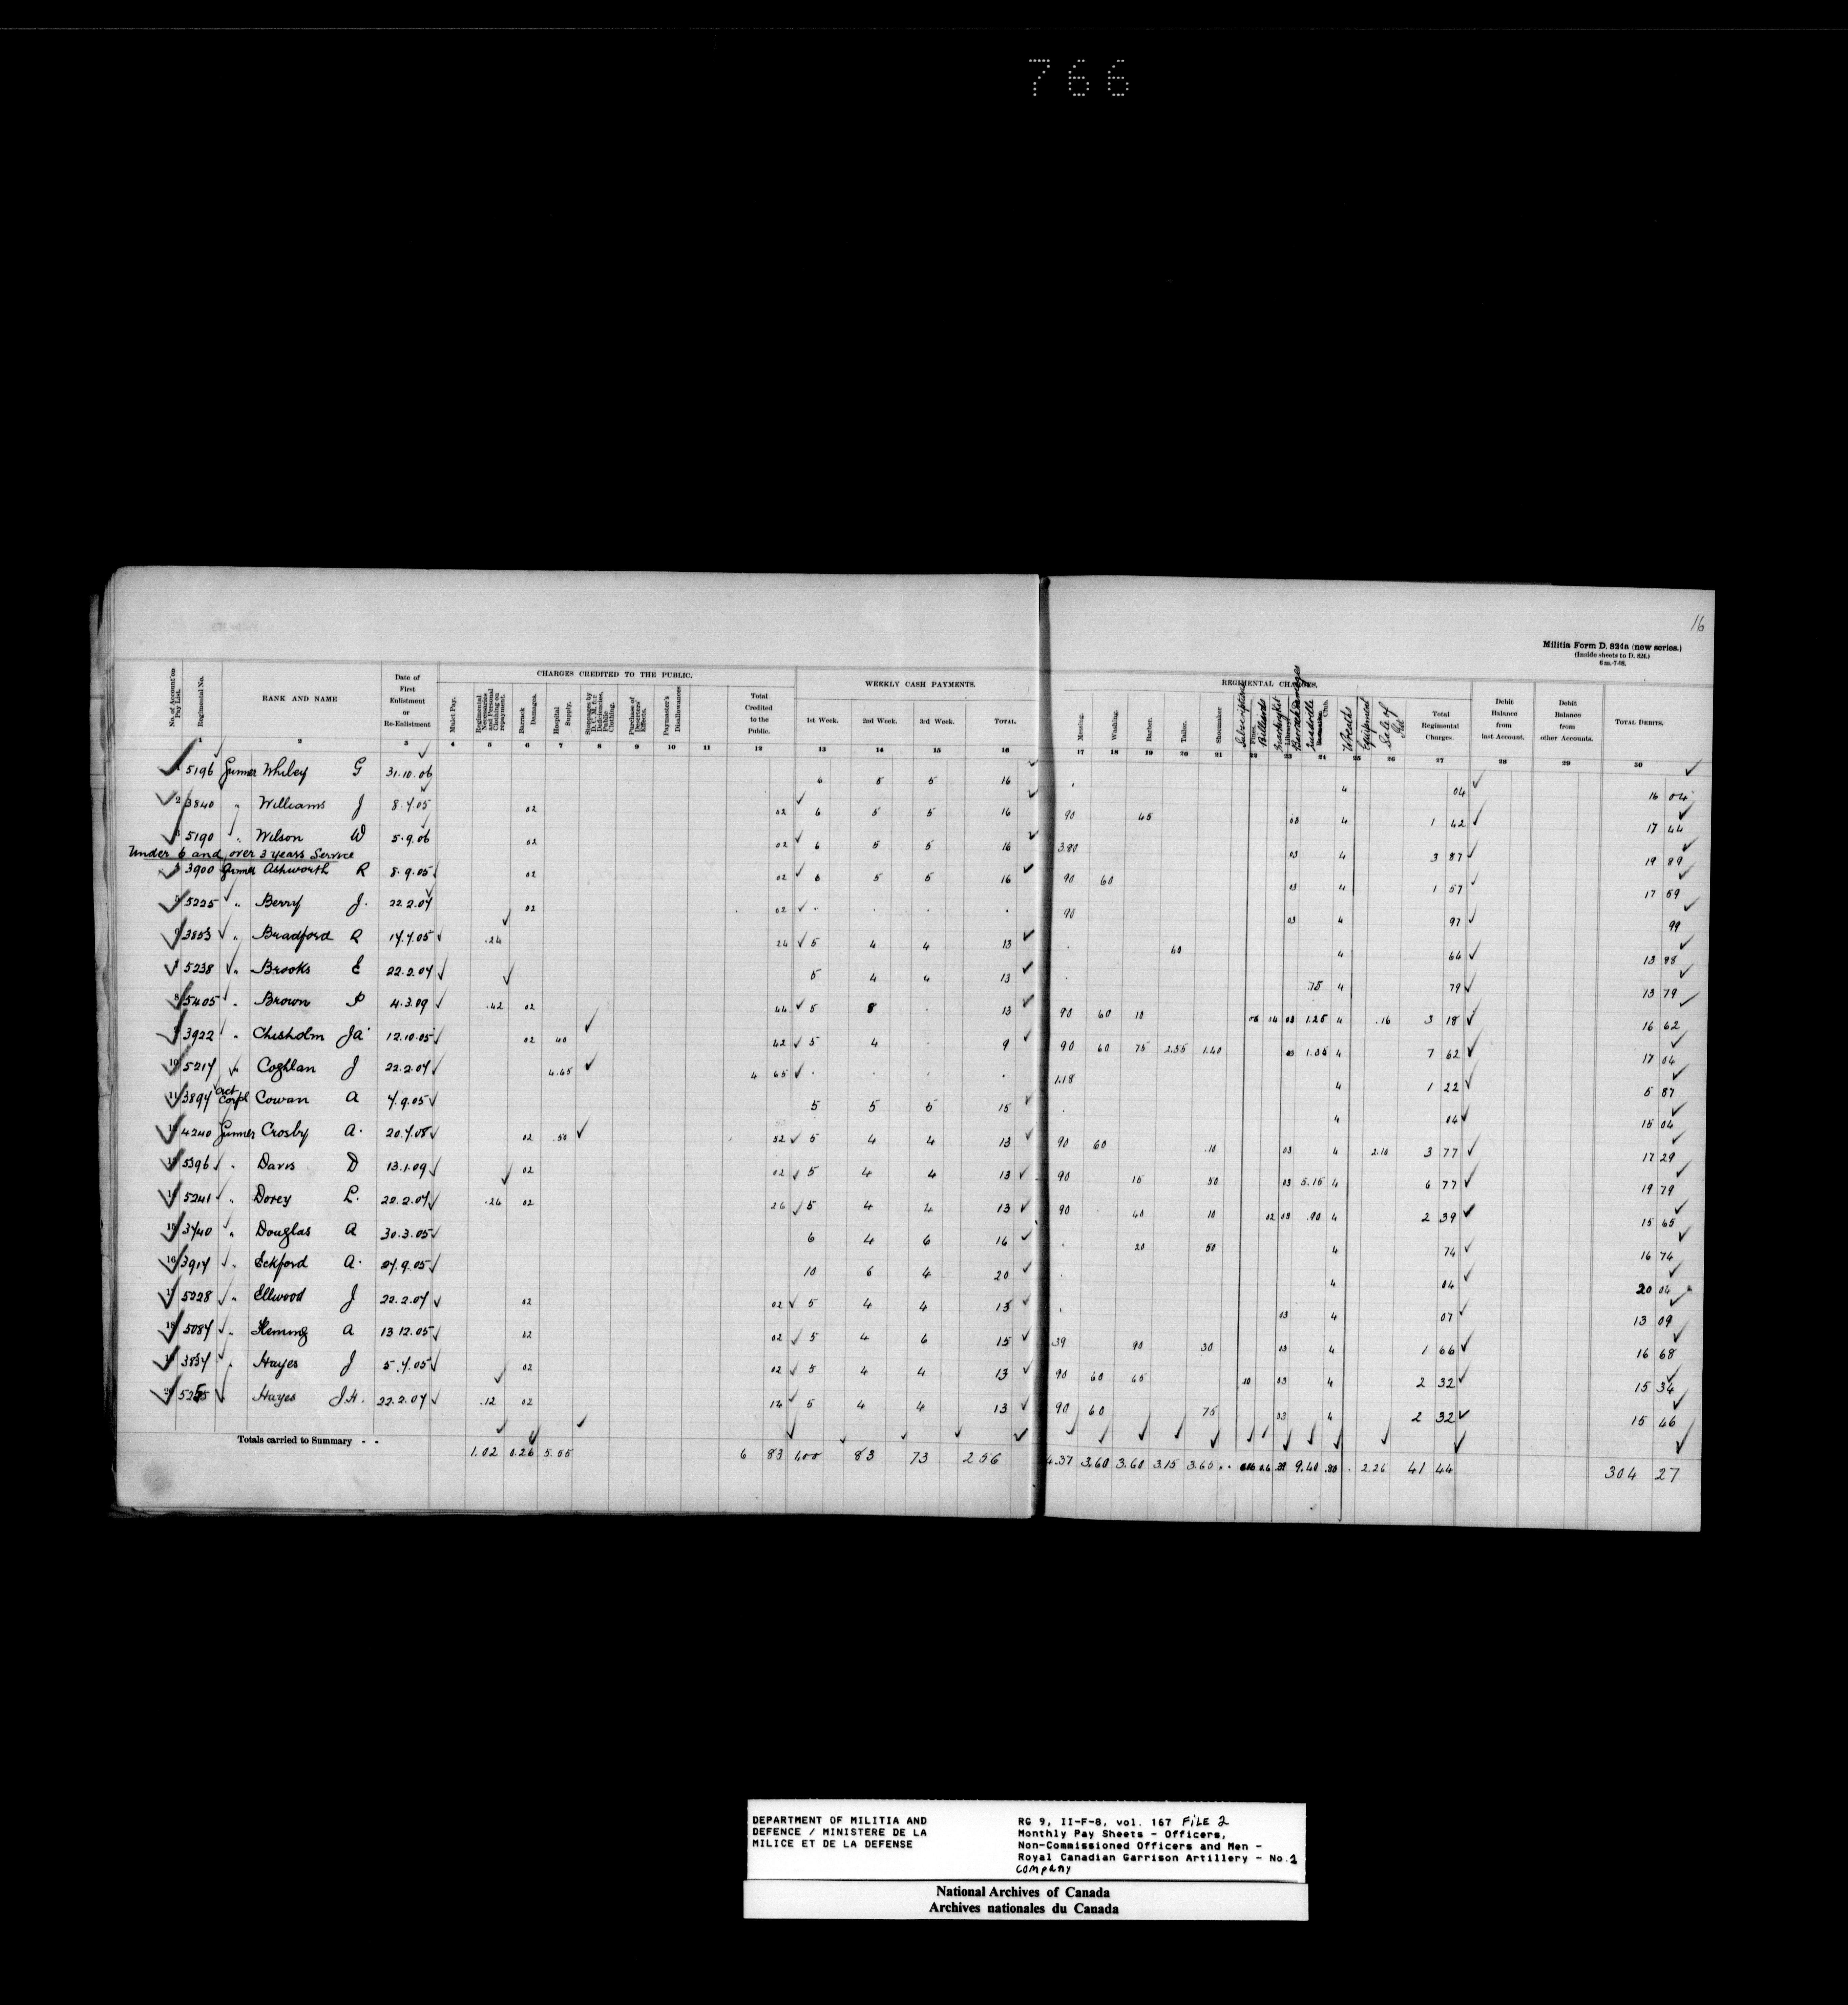 766
16
Militia Form D. 824a (new series.)
(Inside sheets to D. 824.)
6 m.-7-08.
No. of Account on Pay List. Regimental No. RANK AND NAME Date of First Enlistment or Re-Enlistment CHARGES CREDITED TO THE PUBLIC. WEEKLY CASH PAYMENTS. REGIMENTAL CHARGES. Debit Balance from last Account. Debit Balance from other Accounts. TOTAL DEBITS.
Mulct Pay. Regimental Necessaries and Personal Clothing on repayment. Barrack Damages. Hospital Supply. Stoppages by D.C.M. for Deficiencies, Public Clothing. Purchase of Deserters' Effects. Paymaster's Disallowances Total Credited to the Public. 1st Week. 2nd Week. 3rd Week. TOTAL. Messing. Washing. Barber. Tailor. Shoemaker Subscriptions Billiards Barrack Damages Club. Wreaths Equipment Sale of Total Regimental Charges.
1 2 3 4 5 6 7 8 9 10 11 12 13 14 15 16 17 18 19 20 21 22 23 24 25 26 27 28 29 30
5196 Gunner Whiley G 31.10.06 6 5 5 16 4 04 16 04
2 3840 " Williams J 8.7.05 02 02 6 5 5 16 90 45 03 4 1 42 17 44
5190 " Wilson W 5.9.06 02 02 6 5 5 16 3.80 03 4 3 87 19 89
Under 6 and over 3 years Service
3900 Gunner Ashworth R 8.9.05 02 02 6 5 5 16 90 60 03 4 1 57 17 59
5225 " Berry J. 22.2.07 02 02 90 03 4 97 99
3853 " Bradford R 17.7.05 .24 24 5 4 4 13 60 4 64 13 88
5238 " Brooks E 22.2.07 5 4 4 13 .75 4 79 13 79
8 5405 " Brown P 4.3.09 .42 02 44 5 8 13 90 60 10 06 04 03 1.25 4 .16 3 18 16 62
3922 " Chisholm Ja 12.10.05 02 40 42 5 4 9 90 60 75 2.55 1.40 03 1.35 4 7 62 17 04
10 5217 " Coghlan J 22.2.07 4.65 4 65 1.18 4 1 22 5 87
11 3894 Act Corpl Cowan A 7.9.05 5 5 5 15 4 04 15 04
4240 Gunner Crosby A. 20.7.08 02 .50 52 5 4 4 13 90 60 .10 03 4 2.10 3 77 17 29
5396 " Davis D 13.1.09 02 02 5 4 4 13 90 15 50 03 5.15 4 6 77 19 79
5241 " Dorey L. 22.2.07 .24 02 26 5 4 4 13 90 40 10 02 03 .90 4 2 39 15 65
15 3740 " Douglas A 30.3.05 6 4 6 16 20 50 4 74 16 74
16 3917 " Eckford A. 27.9.05 10 6 4 20 4 04 20 04
5228 " Ellwood J 22.2.07 02 02 5 4 4 13 03 4 07 13 09
18 5087 " Fleming A 13 12.05 02 02 5 4 6 15 39 90 30 03 4 1 66 16 68
3837 " Hayes J 5.7.05 02 02 5 4 4 13 90 60 65 10 03 4 2 32 15 34
20 Hayes J.H. 22.2.07 .12 02 14 5 4 4 13 90 60 75 03 4 2 32 15 46
Totals carried to Summary - - 1.02 0.26 5.55 6 83 1,00 83 73 256 4.37 3.60 3.60 3.15 3.65 .39 9.40 .80 2.26 41 44 304 27
DEPARTMENT OF MILITIA AND
DEFENCE / MINISTERE DE LA
MILICE ET DE LA DEFENSE
RG 9, II-F-8, vol. 167 FiLE 2
Monthly Pay Sheets - Officers,
Non-Commissioned Officers and Men -
Royal Canadian Garrison Artillery - No. 1
Company
National Archives of Canada
Archives nationales du Canada